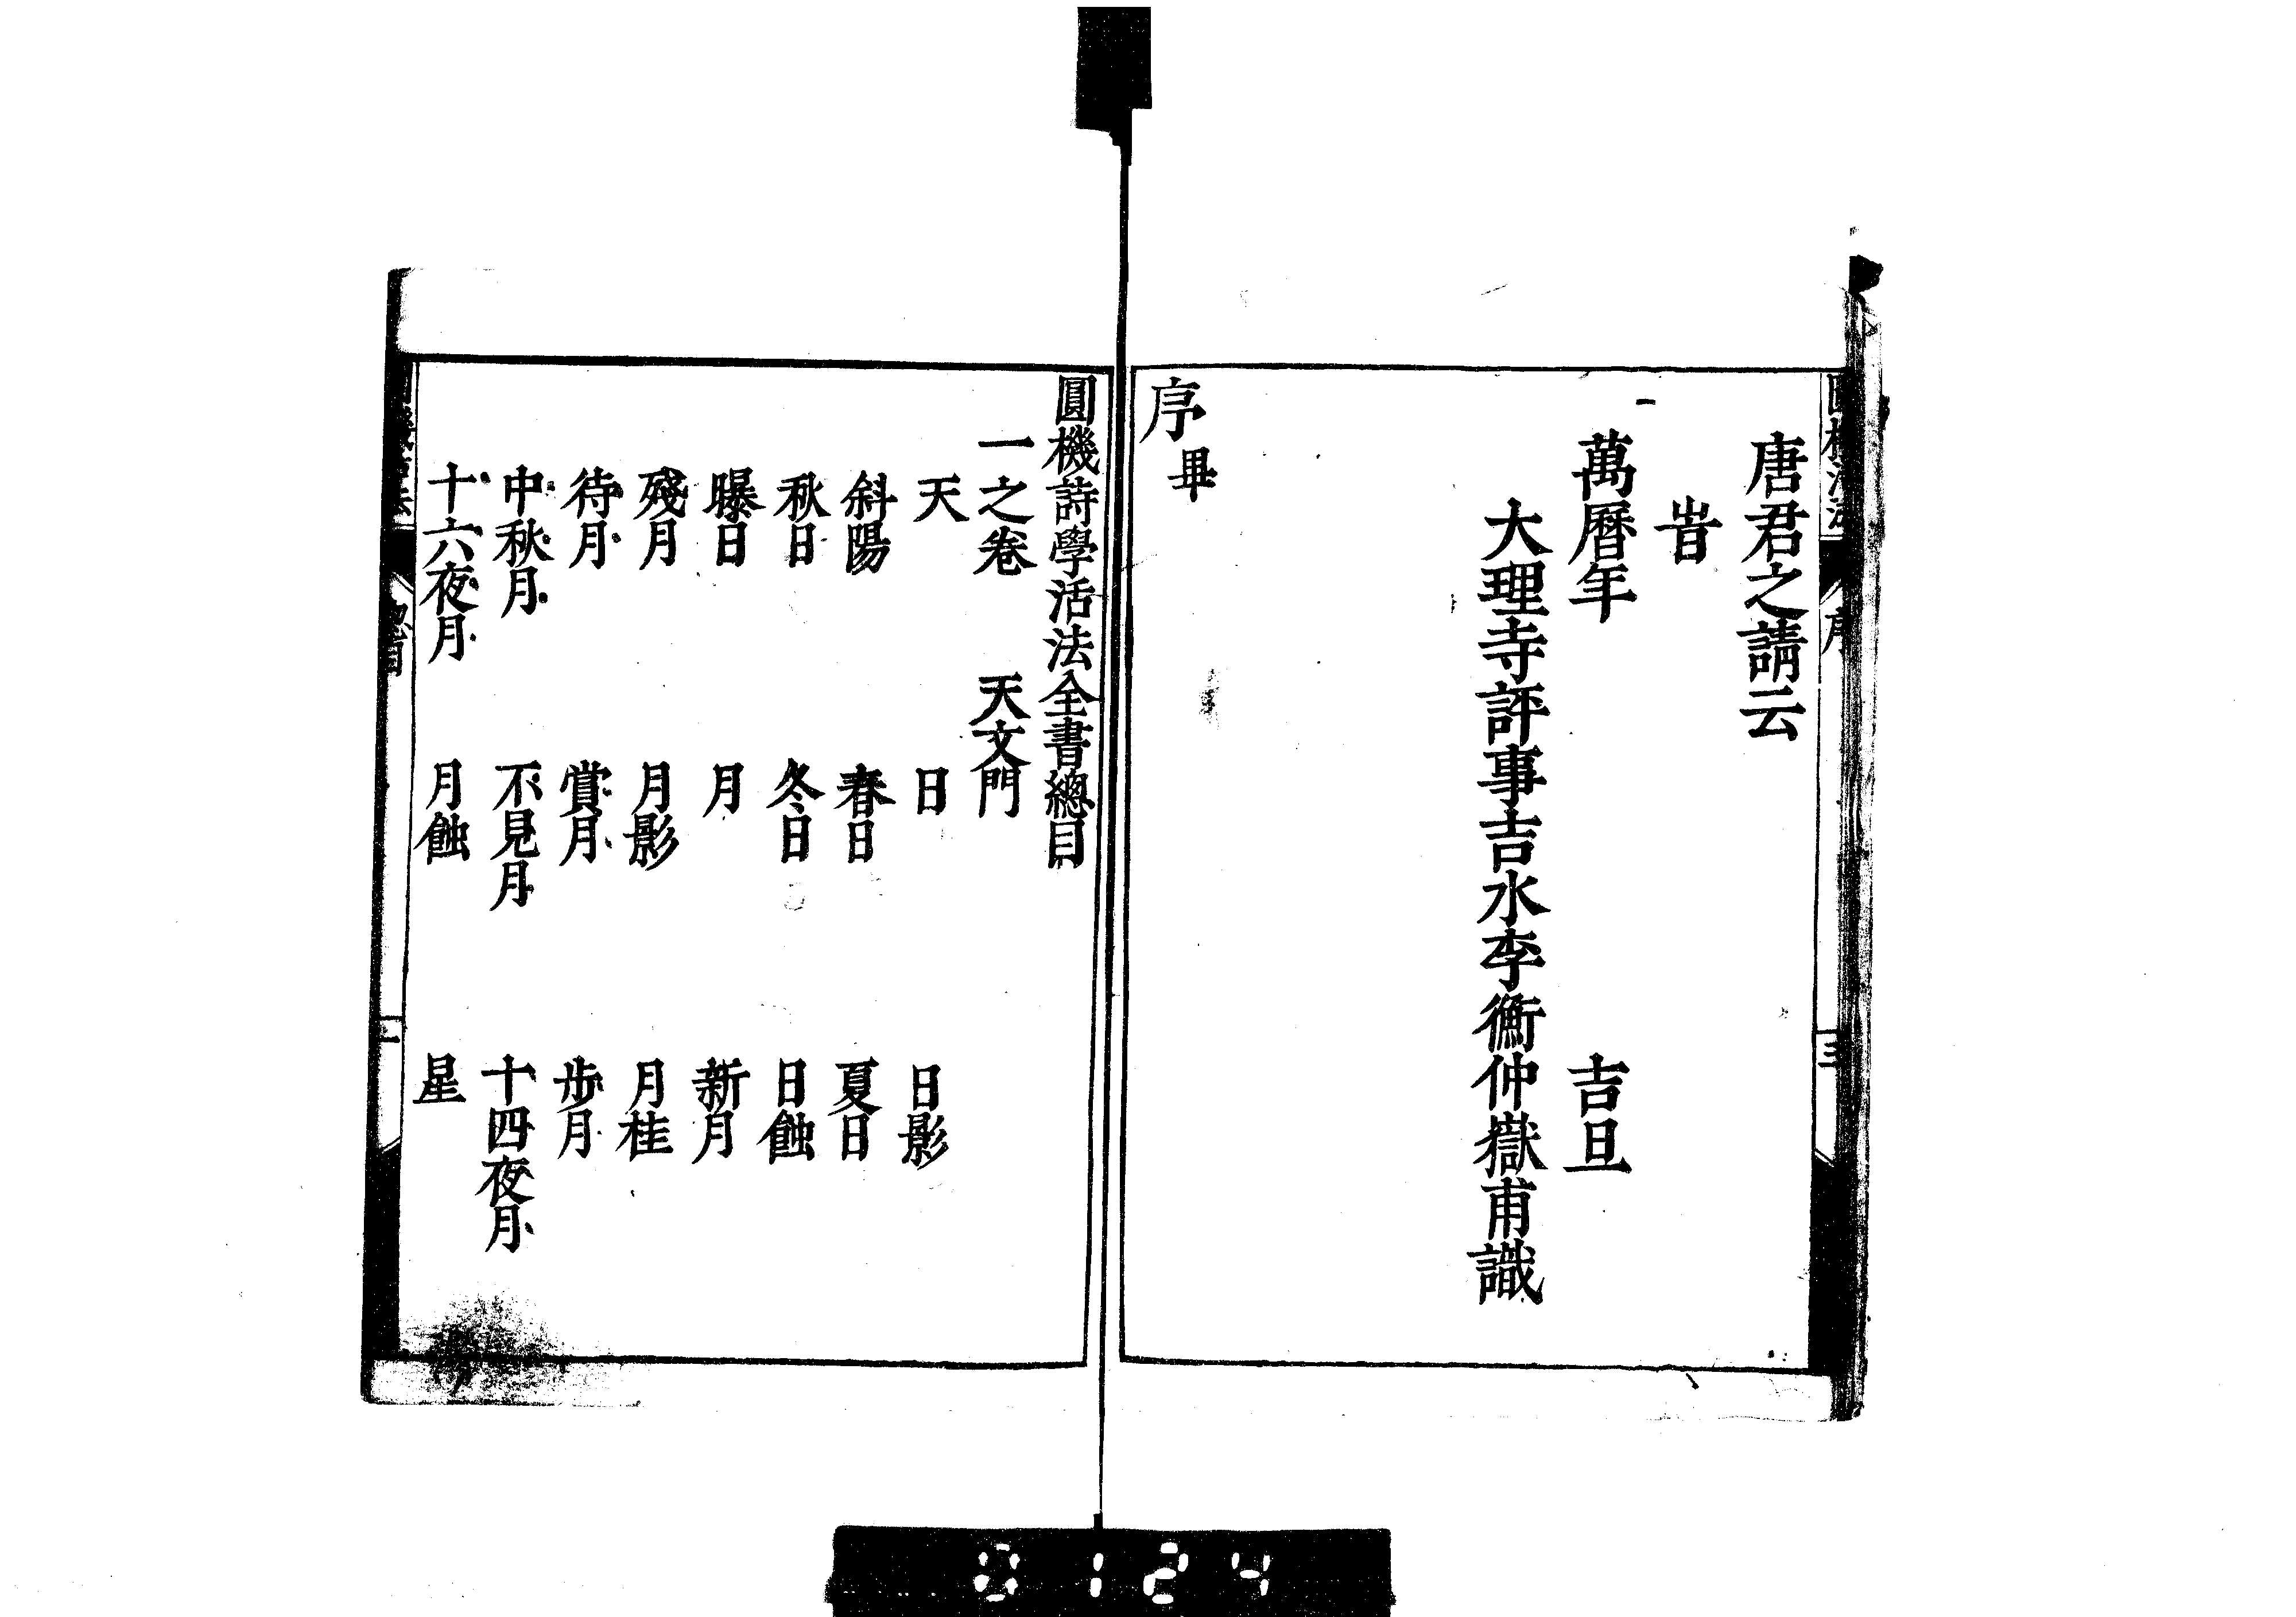 唐君之請云
旹
萬曆年　吉旦
大理寺評事吉水李衡仲嶽甫識
序畢
序
三
圓機詩學活法全書總目
一之卷　天文門
天　日　日影
斜陽　春日　夏日
秋日　冬日　日蝕
曝日　月　新月
殘月　月影　月桂
待月　賞月　步月
中秋月　不見月　十四夜月
十六夜月　月蝕　星
總目
0124